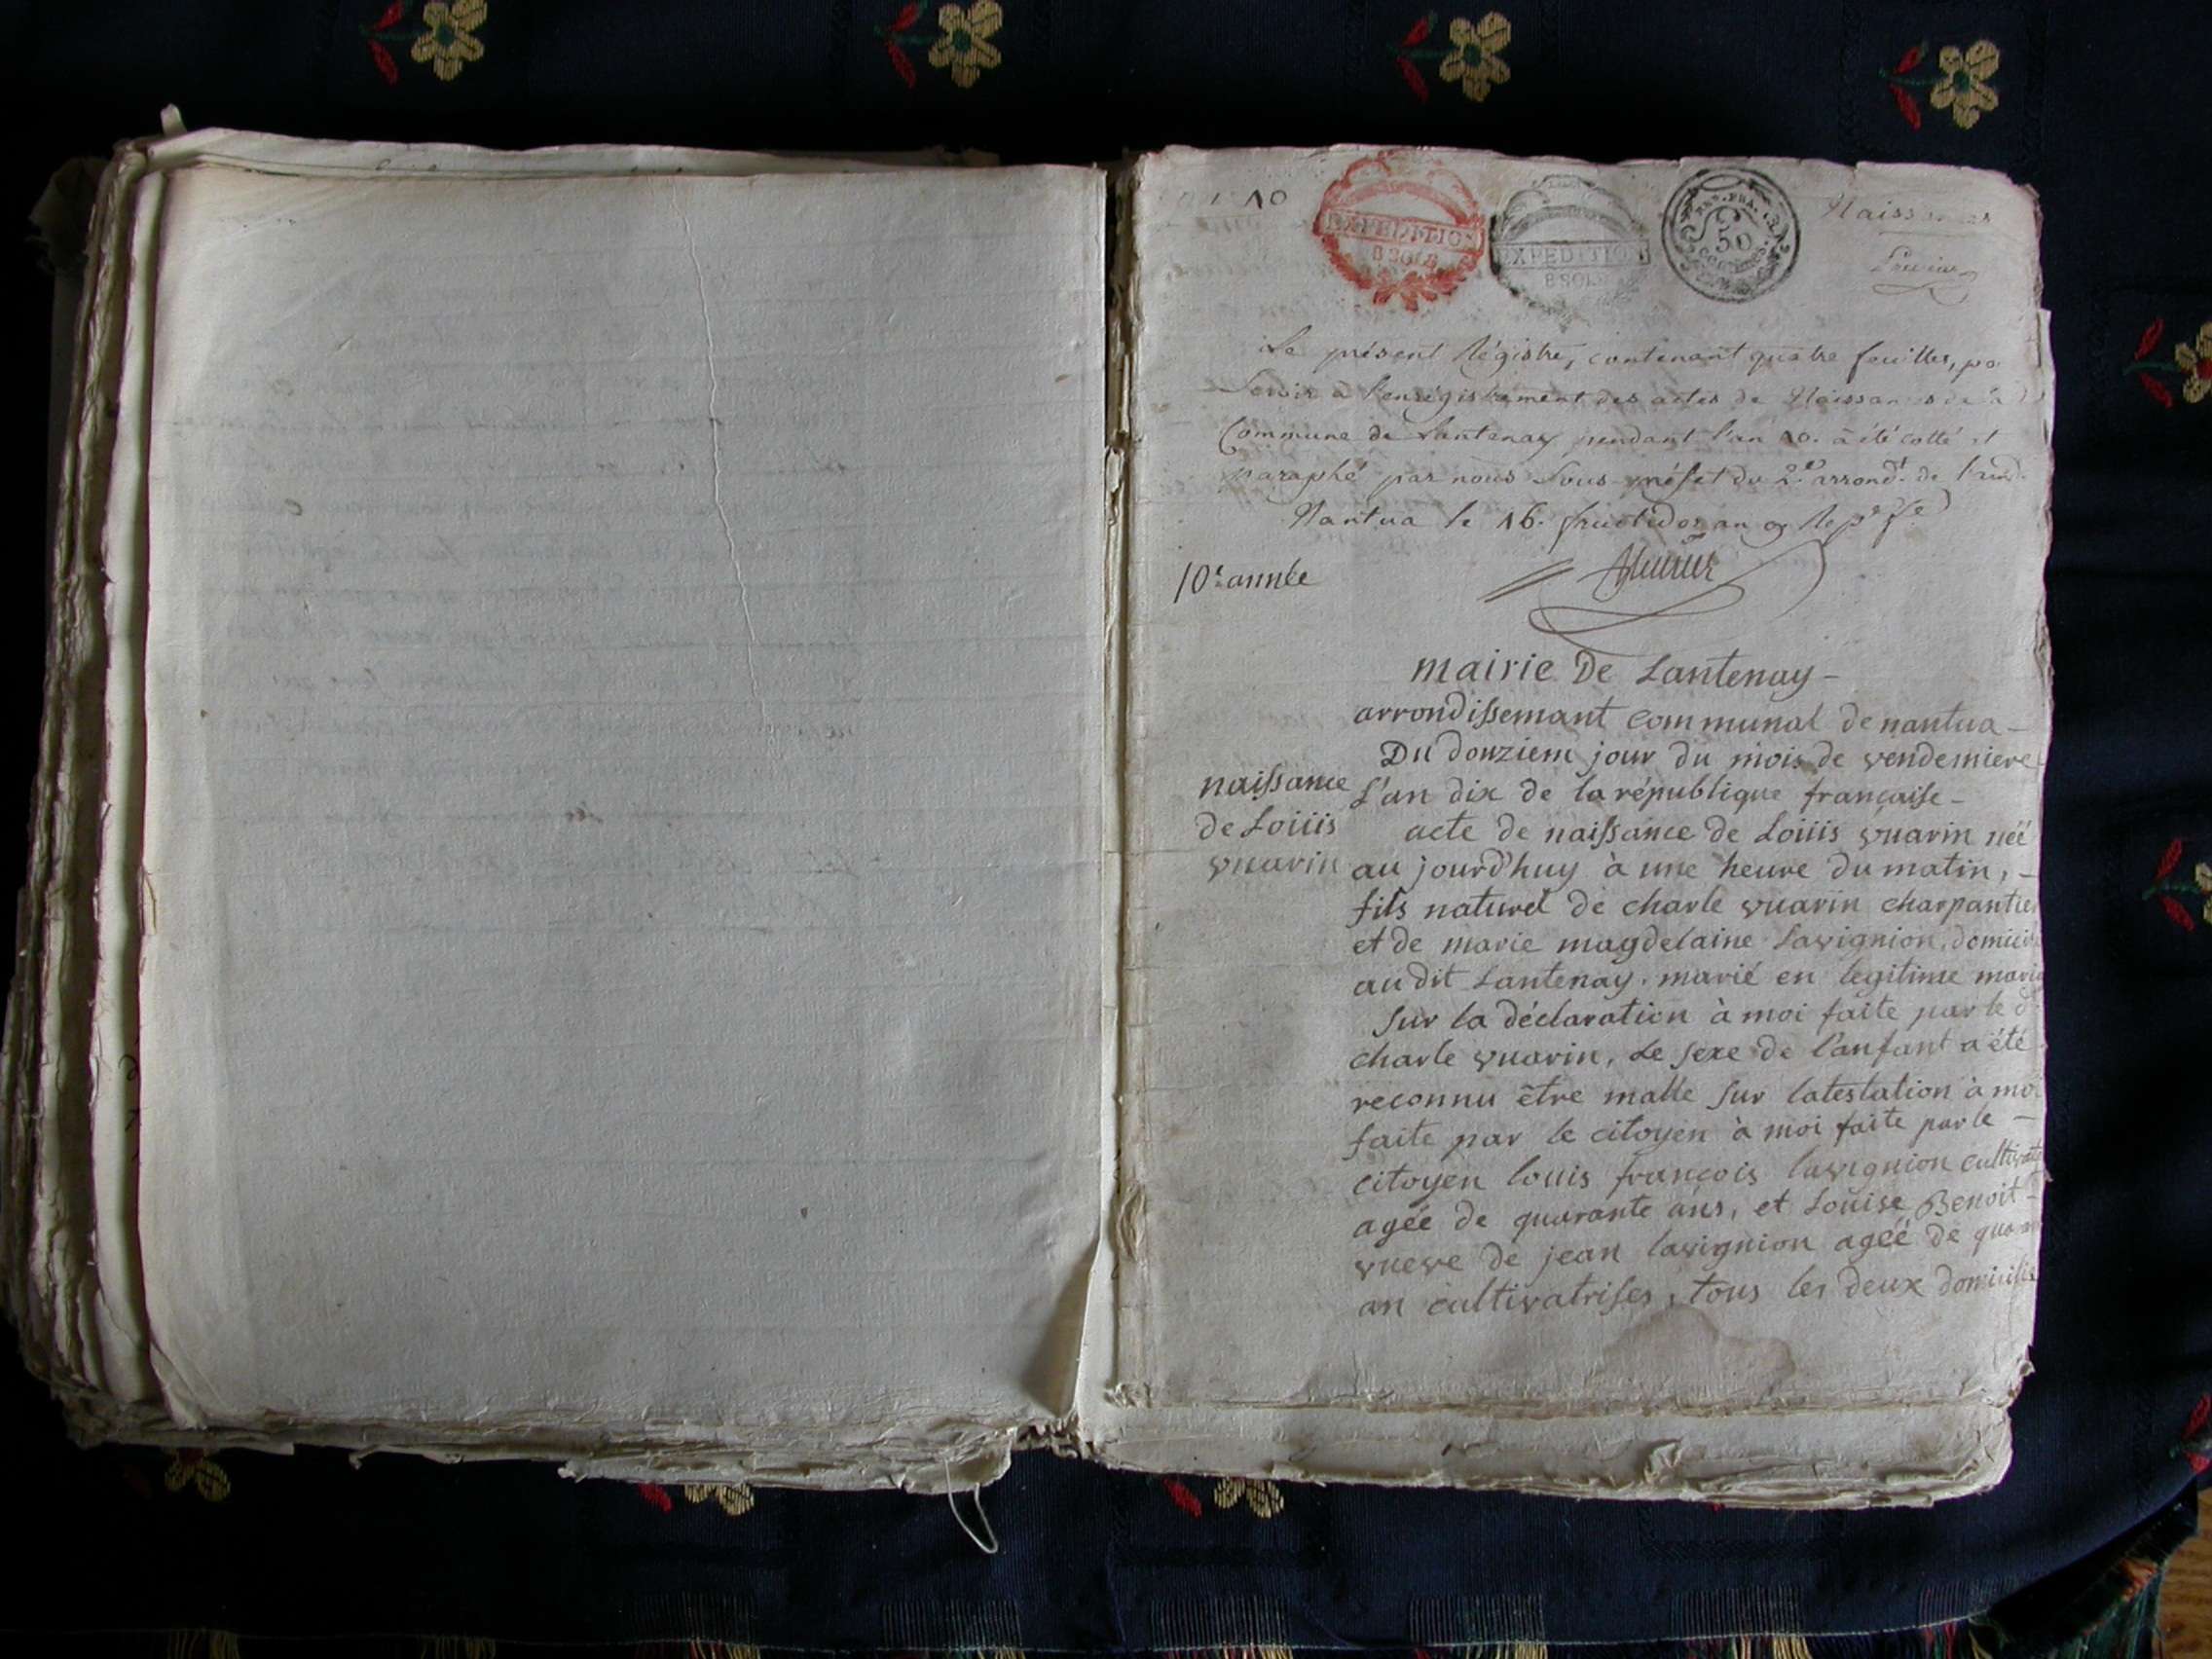 an 10
EXPEDITION
EXPEDITION
50
CENTIMES
Naissances
Le présent Régistre, contenant quatre feuilles, po
Servir à l'enrégistrement des actes de Naissances de la
Commune de Lantenay pendant l'an 10. a été cotté et
paraphé par nous Sous-préfet du 2.e arrond.t de l'ain.
Nantua le 16. fructidor an 9
10.e année
mairie De Lantenay -
arrondissemant communal de nantua -
Du douziem jour du mois de vendemiere
L'an dix de la république francaise -
naissance
de Loiiis
vuarin
acte de naissance de Loiiis vuarin néé
au jourd'huy à une heure du matin, -
fils naturel de charle vuarin charpantier
et de marie magdelaine Lavignion, domicil
au dit Lantenay. marié en legitime maria
Sur la déclaration à moi faite par le d.
charle vuarin, Le sexe de l'anfant a été
reconnu être malle sur latestation à moi
faite par le citoyen à moi faite par le -
citoyen louis francois lavignion cultivate
agée de quarante ans, et Louise Benoit -
vueve de jean lavignion agéé de quaran
an cultivatrises, tous les deux domicilié